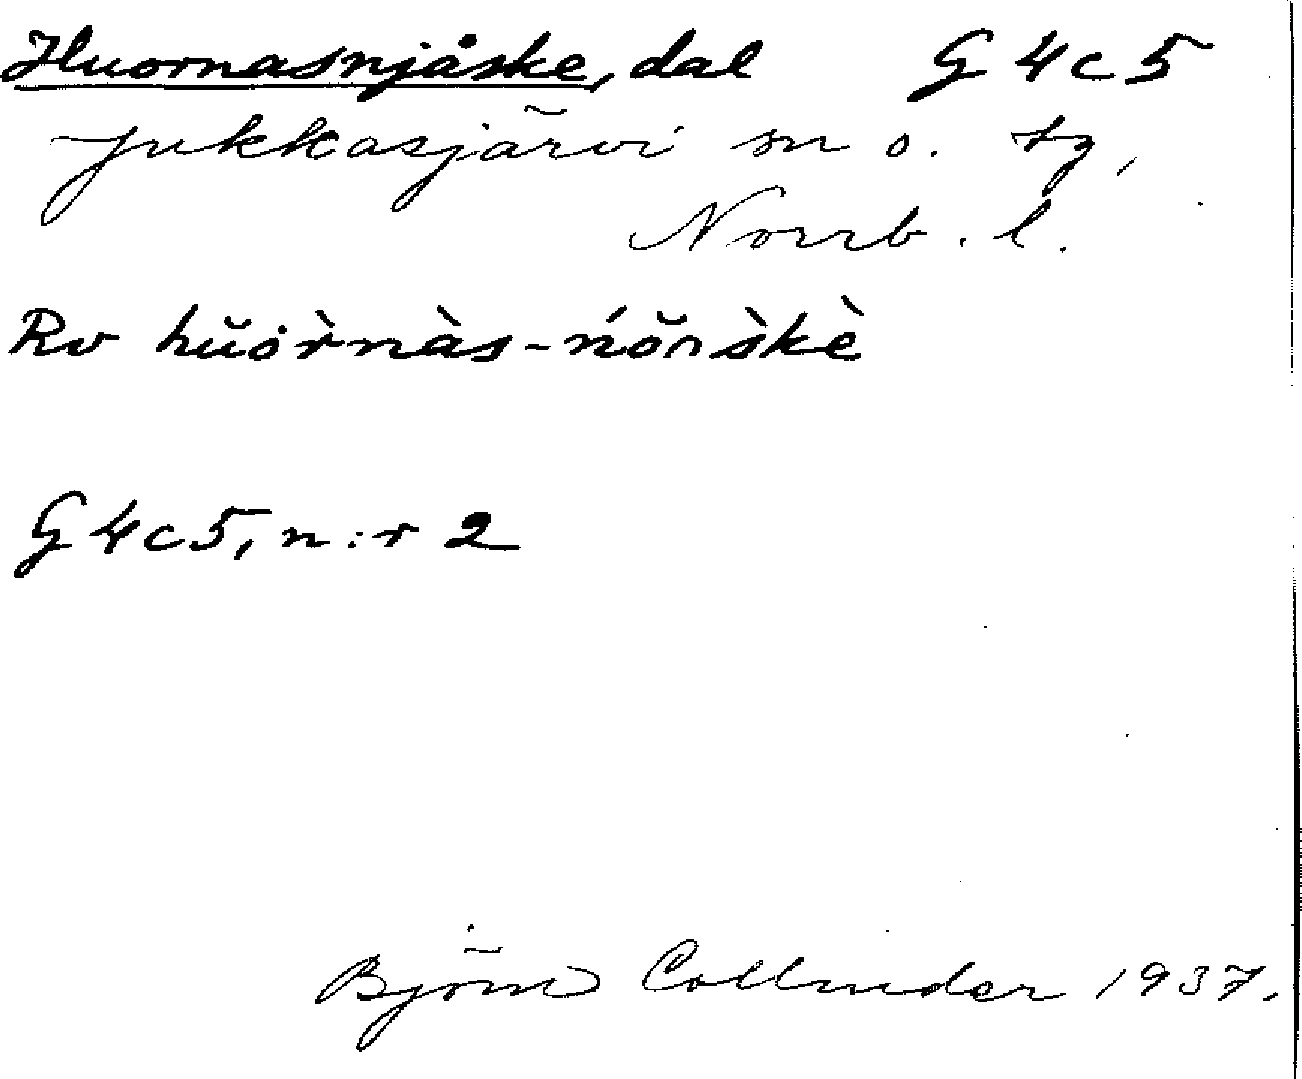 Huornasnjåske, dal G4c5
Jukkasjärvi sn o. tg,
Norrb. l.
Rv
G4c5, n:r 2
Björn Collinder 1937.